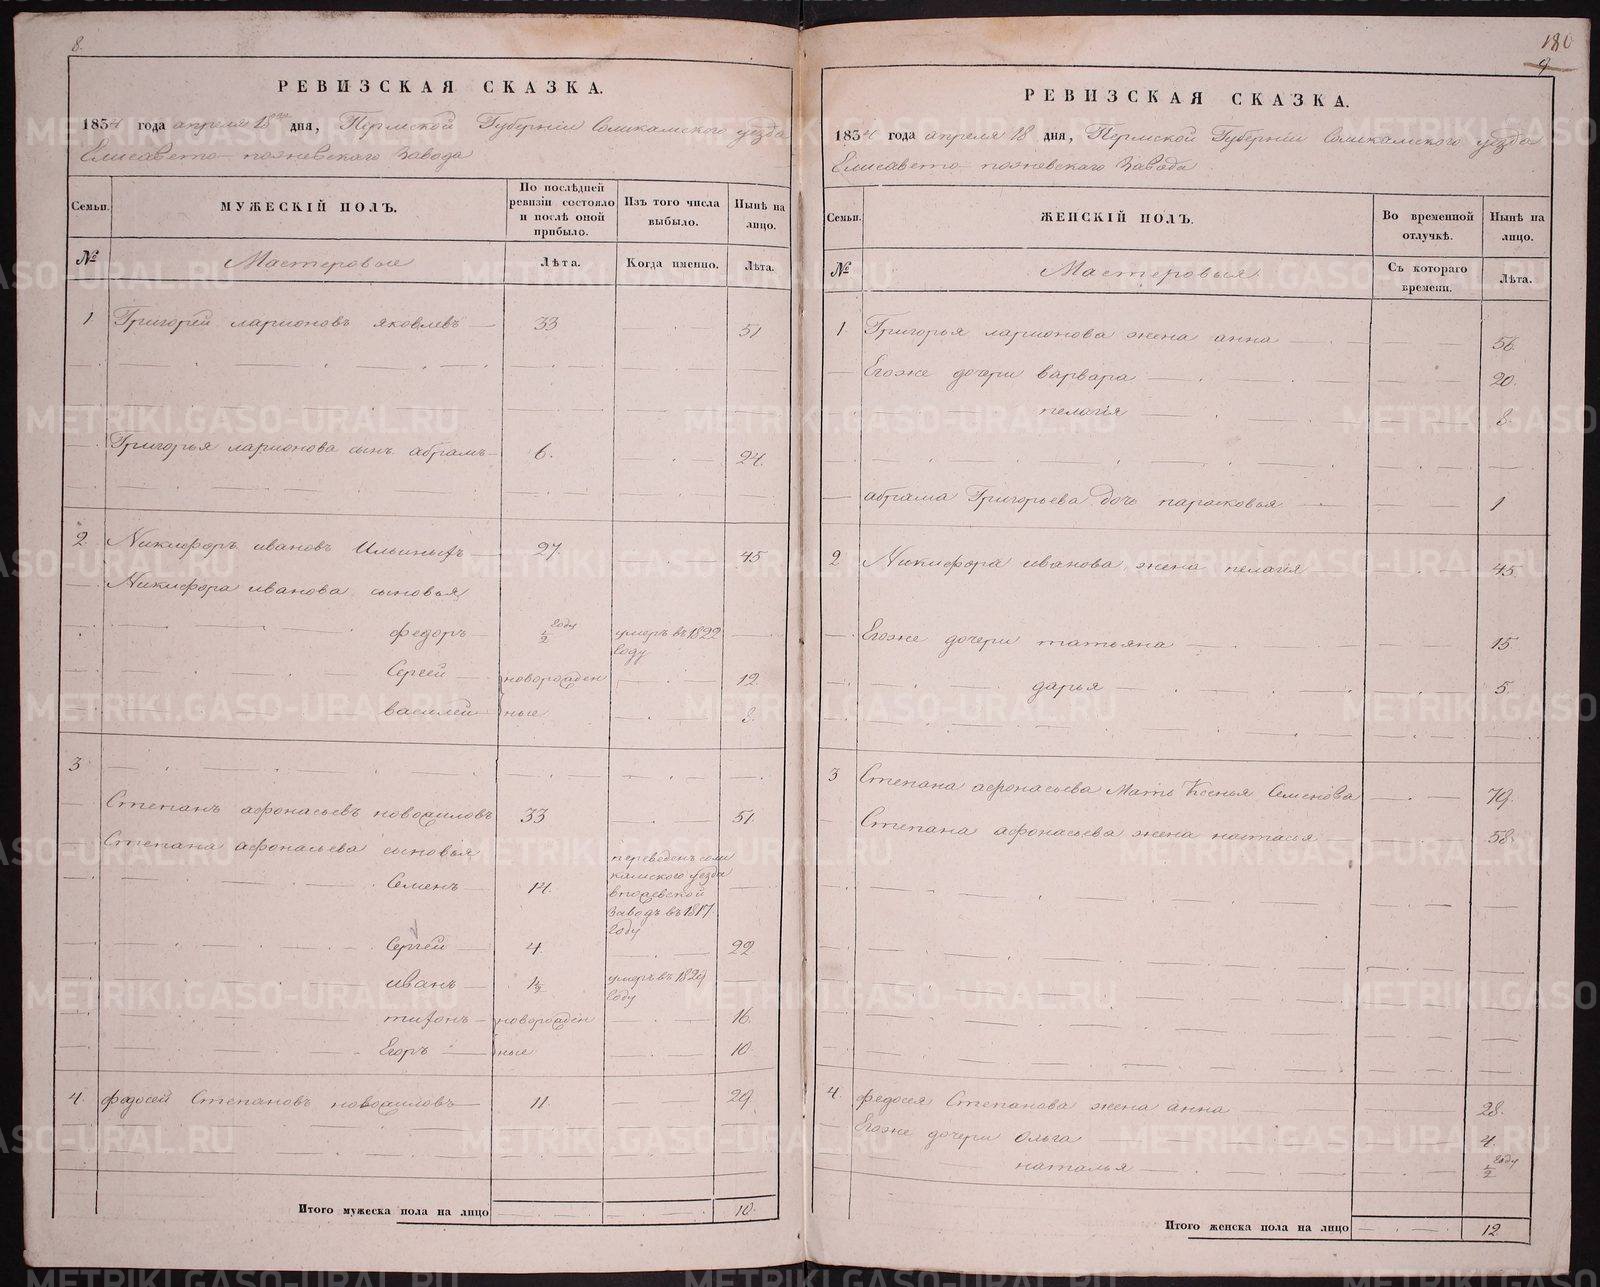 8.
РЕВИЗСКАЯ СКАЗКА.
1834 года апреля 18го дня, Пермской Губернiи Соликамскаго уезда
Елисавето пожевскаго Завода
Семьи.
МУЖЕСКІЙ ПОЛЪ.
По послѣдней ревизіи состояло и послѣ оной прибыло.
Изъ того числа выбыло.
Нынѣ на лицо.
№
Мастеровые
Лѣта.
Когда именно.
Лѣта.
1 Григорей ларионовъ яковлевъ 33 51
Григорья ларионова сынъ абрамъ 6. 24.
2. Никифоръ ивановъ Ильиныхъ 27. 45
Никифора иванова сыновья
федоръ ½ году умеръ въ 1822 году
Сергей новорожден 12.
василей ные 8
3
Степанъ афонасьевъ новожиловъ 33 51.
Степана афонасьева сыновья
Семенъ 14. переведенъ соли камского уезда в пожевской завод въ 1817. году
Сергей 4. 22
иванъ 1½ умеръ въ 1829 году
тихонъ новорожден 16.
Егоръ ные 10
4. федосей Степановъ новожиловъ 11. 29.
Итого мужеска пола на лицо 10.
180
9
РЕВИЗСКАЯ СКАЗКА.
1834 года апреля 18 дня, Пермской Губернiи Соликамскаго уезда
Елисавето пожевскаго Завода
Семьи.
ЖЕНСКІЙ ПОЛЪ.
Во временной отлучкѣ.
Нынѣ на лицо.
№
Мастеровыя
Съ котораго времени.
Лѣта.
1 Григорья ларионова жена анна 56.
Егоже дочери варвара 20.
пелагiя 8.
абрама Григорьева дочь парасковья 1
2 Никифора иванова жена пелагiя 45.
Егоже дочери татьяна 15
дарья 5.
3 Степана афонасьева мать Ксенья Семенова 79.
Степана афонасьева жена настасья 58.
4. федосея Степанова жена анна 28.
Егоже дочери Ольга 4.
наталья ½ году
Итого женска пола на лицо 12
METRIKI.GASO-URAL.RU